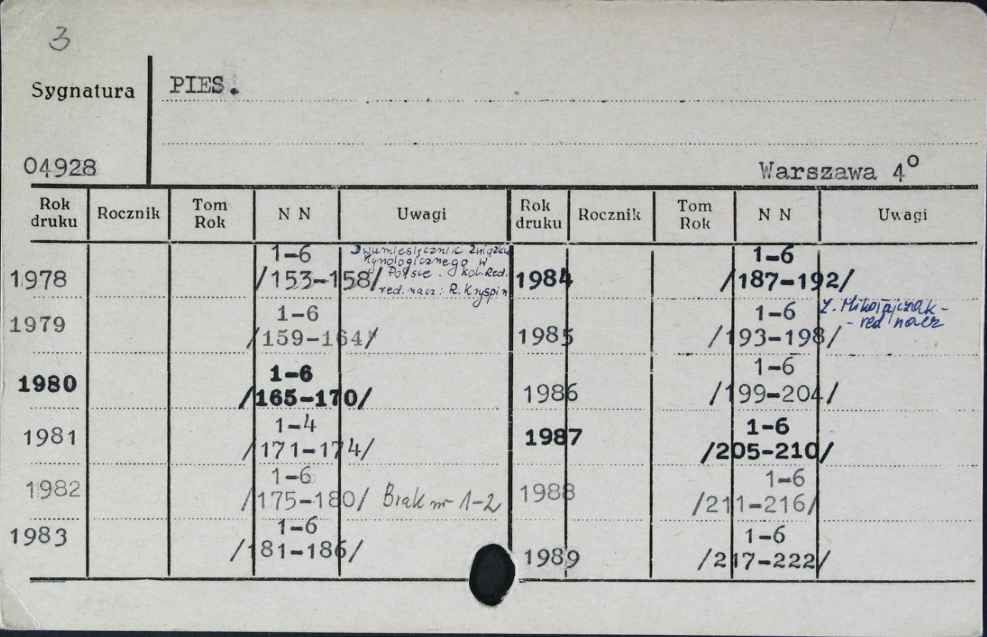 3
Sygnatura
PIES.
04928
Warszawa 4°
Rok druku Rocznik Tom Rok N N Uwagi Rok druku Rocznik Tom Rok N N Uwagi
1978 1-6 /153-158/ Dwumiesięcznik Związku Kynologicznego w Polsce. Kol. Red. red. nacz: R. Kryspin
1984 1-6 /187-192/
1979 1-6 /159-164/
1985 1-6 /193-198/ Mikołajczak - red nacz
1980 1-6 /165-170/
1986 1-6 /199-204/
1981 1-4 /171-174/
1987 1-6 /205-210/
1982 1-6 /175-180/ Brak nr 1-2
1988 1-6 /211-216/
1983 1-6 /181-186/
1989 1-6 /217-222/